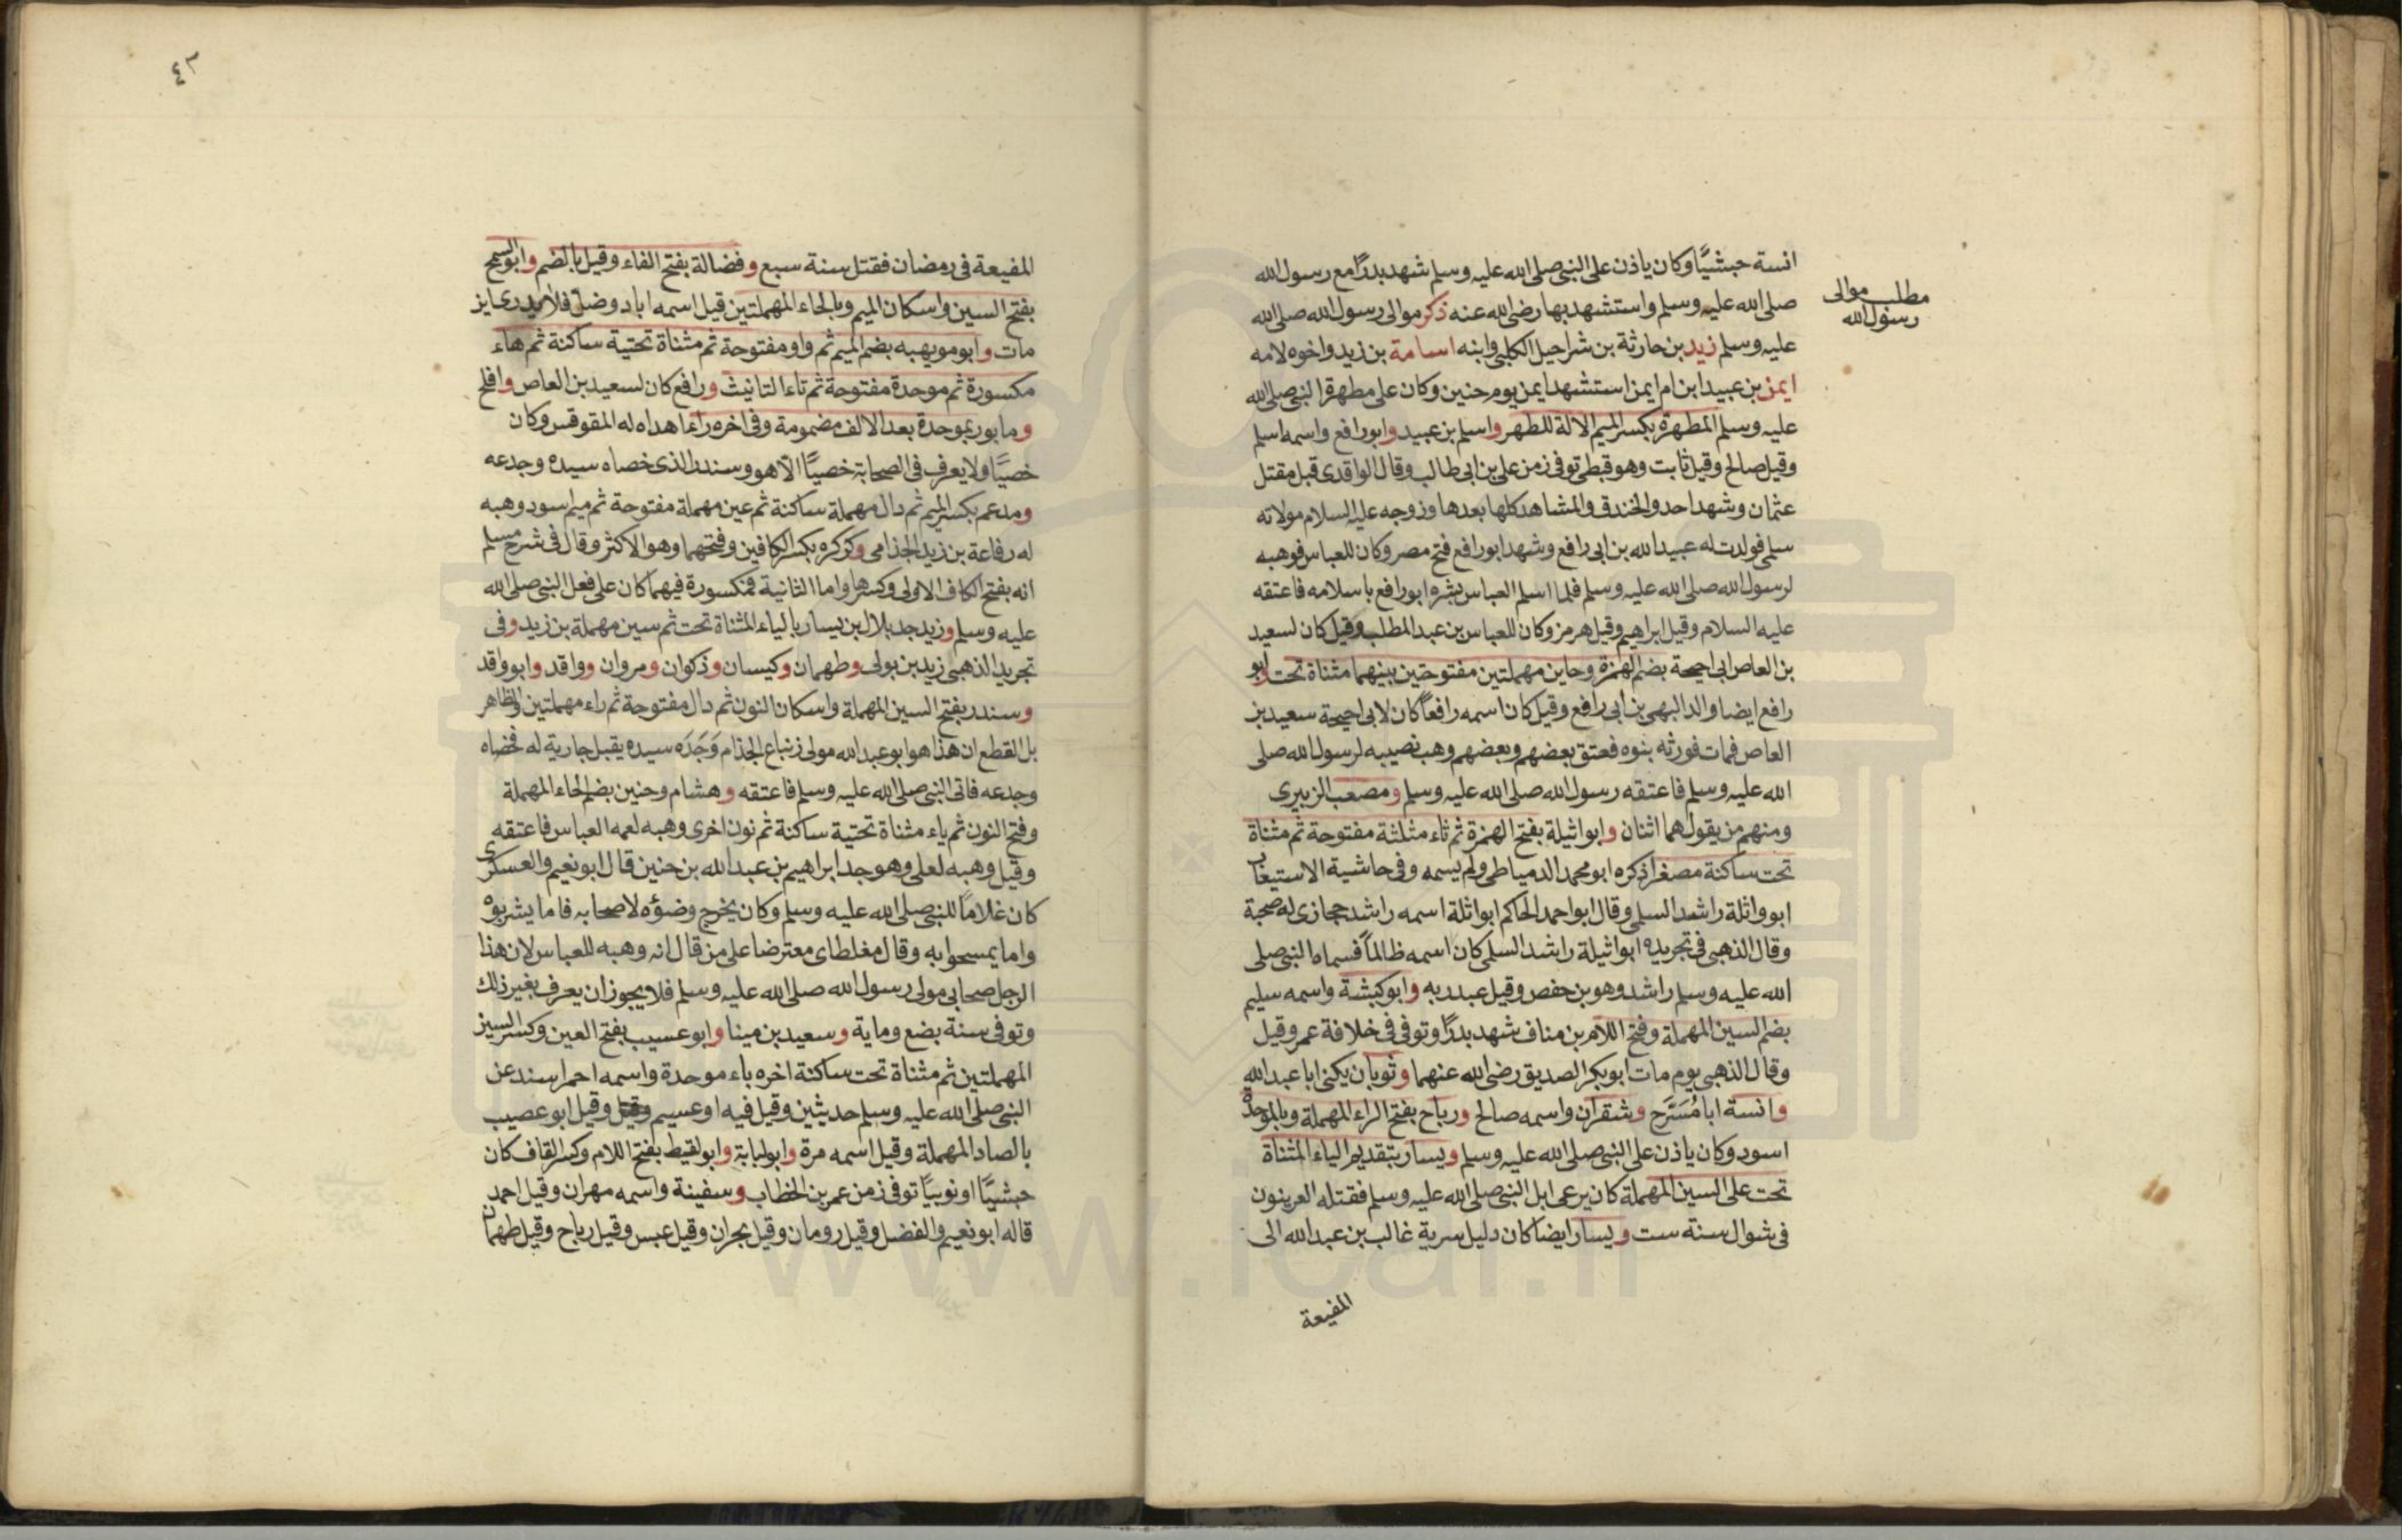 انسة حبشيًّا وكان ياذن على النبى صلى الله عليه وسلم شهد بدرًا مع رسول الله
مطلب موالى
رسول الله
صلى الله عليه وسلم واستشهد بها رضى الله عنه ذكر موالى رسول الله صلى الله
عليه وسلم زيد بن حارثة بن شراحيل الكلبى وابنه اسامة بن زيد واخوه لامه
ايمن بن عبيد ابن ام ايمن استشهد ايمن يوم حنين وكان على مطهرة النبى صلى الله
عليه وسلم المطهرة بكسر الميم الالة للطهر واسلم بن عبيد وابو رافع واسمه اسلم
وقيل صالح وقيل ثابت وهو قبطى توفى زمن على بن ابى طالب وقال الواقدى قبل مقتل
عثمان وشهد احد والخندق والمشاهد كلها بعدها وزوجه عليه السلام مولاته
سلمى فولدت له عبيد الله بن ابى رافع وشهد ابو رافع فتح مصر وكان للعباس فوهبه
لرسول الله صلى الله عليه وسلم فلما اسلم العباس بشره ابو رافع باسلامه فاعتقه
عليه السلام وقيل ابراهيم وقيل هرمز وكان للعباس بن عبد المطلب وقيل كان لسعيد
بن العاص ابى احيحة بضم الهمزة وحاين مهملتين مفتوحتين بينهما مثناة تحت وابو
رافع ايضا والد البهى بن ابى رافع وقيل كان اسمه رافعاً كان لابى احيحة سعيد بن
العاص فمات فورثه بنوه فعتق بعضهم وبعضهم وهب نصيبه لرسول الله صلى
الله عليه وسلم فاعتقه رسول الله صلى الله عليه وسلم ومصعب الزبيرى
ومنهم من يقول هما اثنان وابو اثيلة بفتح الهمزة ثم ثاء مثلثة مفتوحة ثم مثناة
تحت ساكنة مصغرا ذكره ابو محمد الدمياطى ولم يسمه وفى حاشية الاستيعاب
ابو واثلة راشد السلمى وقال ابو احمد الحاكم ابو اثلة اسمه راشد حجازى له صحبة
وقال الذهبى فى تجريده ابو اثيلة راشد السلمى كان اسمه ظالماً فسماه النبى صلى
الله عليه وسلم راشد وهو بن حفص وقيل عبد ربه وابو كبشة واسمه سليم
بضم السين المهملة وفتح اللام بن مناف شهد بدرًا وتوفى فى خلافة عمر وقيل
وقال الذهبى يوم مات ابو بكر الصديق رضى الله عنهما وثوبان يكنى ابا عبد الله
وانسة ابا مُسَرَّح وشقران واسمه صالح ورباح بفتح الراء المهملة وبالموحدة
اسود وكان ياذن على النبى صلى الله عليه وسلم ويسار بتقديم الياء المثناة
تحت على السين المهملة كان يرعى ابل النبى صلى الله عليه وسلم فقتله العرينون
فى شوال سنة ست ويسار ايضا كان دليل سرية غالب بن عبد الله الى
المفيعة
٤٣
المفيعة فى رمضان فقتل سنة سبع وفضالة بفتح الفاء وقيل بالضم وابو السمح
بفتح السين واسكان الميم وبالحاء المهملتين قيل اسمه اباد وضل فلا يدرى اين
مات وابو مويهبه بضم الميم ثم واو مفتوحة ثم مثناة تحتية ساكنة ثم هاء
مكسورة ثم موحدة مفتوحة ثم تاء التانيث ورافع كان لسعيد بن العاص وافلح
ومابور بموحدة بعد الالف مضمومة وفى اخره راء اهداه له المقوقس وكان
خصيًّا ولا يعرف فى الصحابة خصيًّا الا هو وسندر الذى خصاه سيده وجدعه
ومدعم بكسر الميم ثم دال مهملة ساكنة ثم عين مهملة مفتوحة ثم ميم اسود وهبه
له رفاعة بن زيد الجذامى وكركره بكسر الكافين وفتحهما وهو الاكثر وقال فى شرح مسلم
انه بفتح الكاف الاولى وكسرها واما الثانية فمكسورة فيهما كان على فعل النبى صلى الله
عليه وسلم وزيد جد بلال بن يسار بالياء المثناة تحت ثم سين مهملة بن زيد وفى
تجريد الذهبى زيد بن بولى وطهمان وكيسان وذكوان ومروان وواقد وابو واقد
وسندر بفتح السين المهملة واسكان النون ثم دال مفتوحة ثم راء مهملتين والظاهر
بل القطع ان هذا هو ابو عبد الله مولى زنباع الجذام وَجَدَه سيده يقبل جارية له فخصاه
وجدعه فاتى النبى صلى الله عليه وسلم فاعتقه وهشام وحنين بضم الحاء المهملة
وفتح النون ثم ياء مثناة تحتية ساكنة ثم نون اخرى وهبه لعمه العباس فاعتقه
وقيل وهبه لعلى وهو جد ابراهيم بن عبد الله بن حنين قال ابو نعيم والعسكرى
كان غلاماً للنبى صلى الله عليه وسلم وكان يخرج وضؤه لاصحابه فاما يشربوه
واما يمسحوا به وقال مغلطاى معترضا على من قال انه وهبه للعباس لان هذا
الرجل صحابى مولى رسول الله صلى الله عليه وسلم فلا يجوز ان يعرف بغير ذلك
وتوفى سنة بضع وماية وسعيد بن مينا وابو عسيب بفتح العين وكسر السين
المهملتين ثم مثناة تحت ساكنة اخره باء موحدة واسمه احمر اسند عن
النبى صلى الله عليه وسلم حديثين وقيل فيه او عسيم وقيل ابو عصيب
بالصاد المهملة وقيل اسمه مرة وابو لبابة وابو لقيط بفتح اللام وكسر القاف كان
حبشيًّا او نوبيًا توفى زمن عمر بن الخطاب وسفينة واسمه مهران وقيل احمد
قاله ابو نعيم والفضل وقيل رومان وقيل بحران وقيل عبس وقيل رباح وقيل طهمان